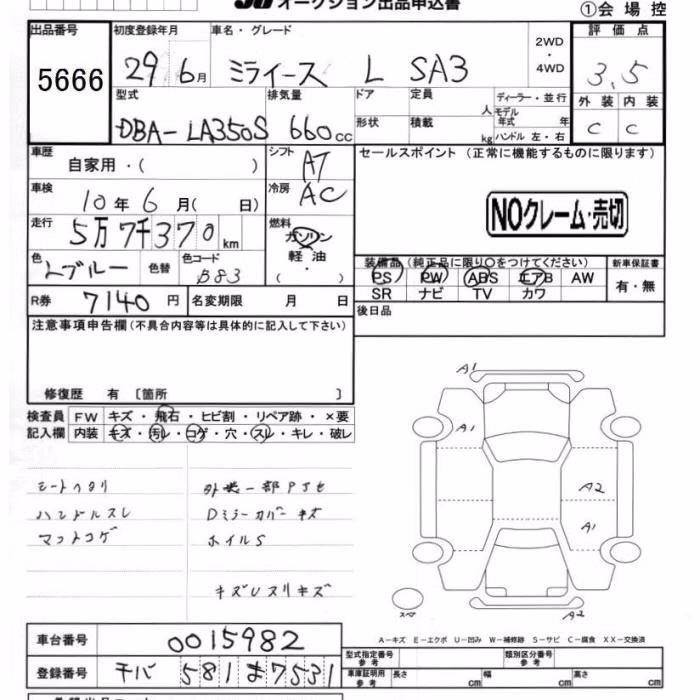 オークション出品申込書
①会場控
出品番号
5666
初度登録年月
29年 6月
車名・グレード
ミライース L SA3
2WD
・
4WD
評価点
3.5
外装 内装
C C
型式
DBA-LA350S
排気量
660cc
ドア
形状
定員 人
積載 kg
ディーラー・並行
モデル年式 年
ハンドル 左・右
車歴
自家用・( )
シフト
AT
車検
10年 6月( 日)
冷房
AC
走行
5万7千370km
燃料
ガソリン
軽油
( ・ )
色
Lブルー
色替
色コード
B83
R券
7140円
名変期限 月 日
セールスポイント (正常に機能するものに限ります)
NOクレーム・売切
装備品(純正品に限り○をつけてください)
PS PW ABS エアB AW
SR ナビ TV カワ
新車保証書
有・無
後日品
注意事項申告欄(不具合内容等は具体的に記入して下さい)
修復歴 有 〔箇所 〕
検査員記入欄
FW キズ・飛石・ヒビ割・リペア跡・×要
内装 キズ・汚レ・コゲ・穴・スレ・キレ・破レ
シートヘタリ
ハンドルスレ
マットコゲ
外装一部PタU
Dミラーカバーキズ
ホイルS
キズUスリキズ
A1
A1
A2
A1
A2
スペア
A-キズ E-エクボ U-凹み W-補修跡 S-サビ C-腐食 XX-交換済
車台番号
0015982
登録番号
チバ 581 ま 7531
型式指定番号
参考
類別区分番号
参考
車庫証明用
参考
長さ cm
幅 cm
高さ cm